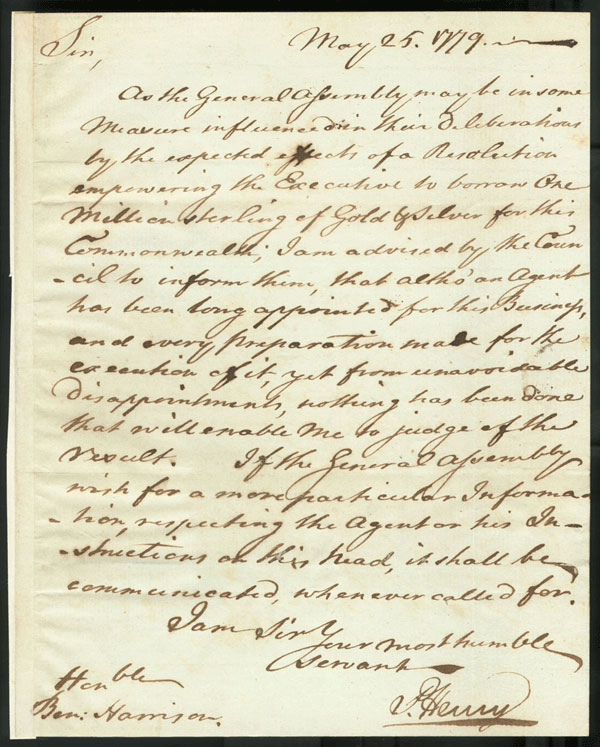 Sir,
May 25. 1779.
As the General Assembly may be in some
Measure influenced in their deliberations
by the expected effects of a Resolution
empowering the Executive to borrow One
Million sterling of Gold & Silver for this
Commonwealth; I am advised by the Coun
-cil to inform them, that altho' an Agent
has been long appointed for this Business,
and every preparation made for the
execution of it, yet from unavoidable
Disappointments, nothing has been done
that will enable me to judge of the
result. If the General Assembly
wish for a more particular Informa-
-tion, respecting the Agent or his In-
-structions on this head, it shall be
communicated, whenever called for.
I am Sir
Your most humble
servant
P. Henry
Honble
Ben: Harrison.